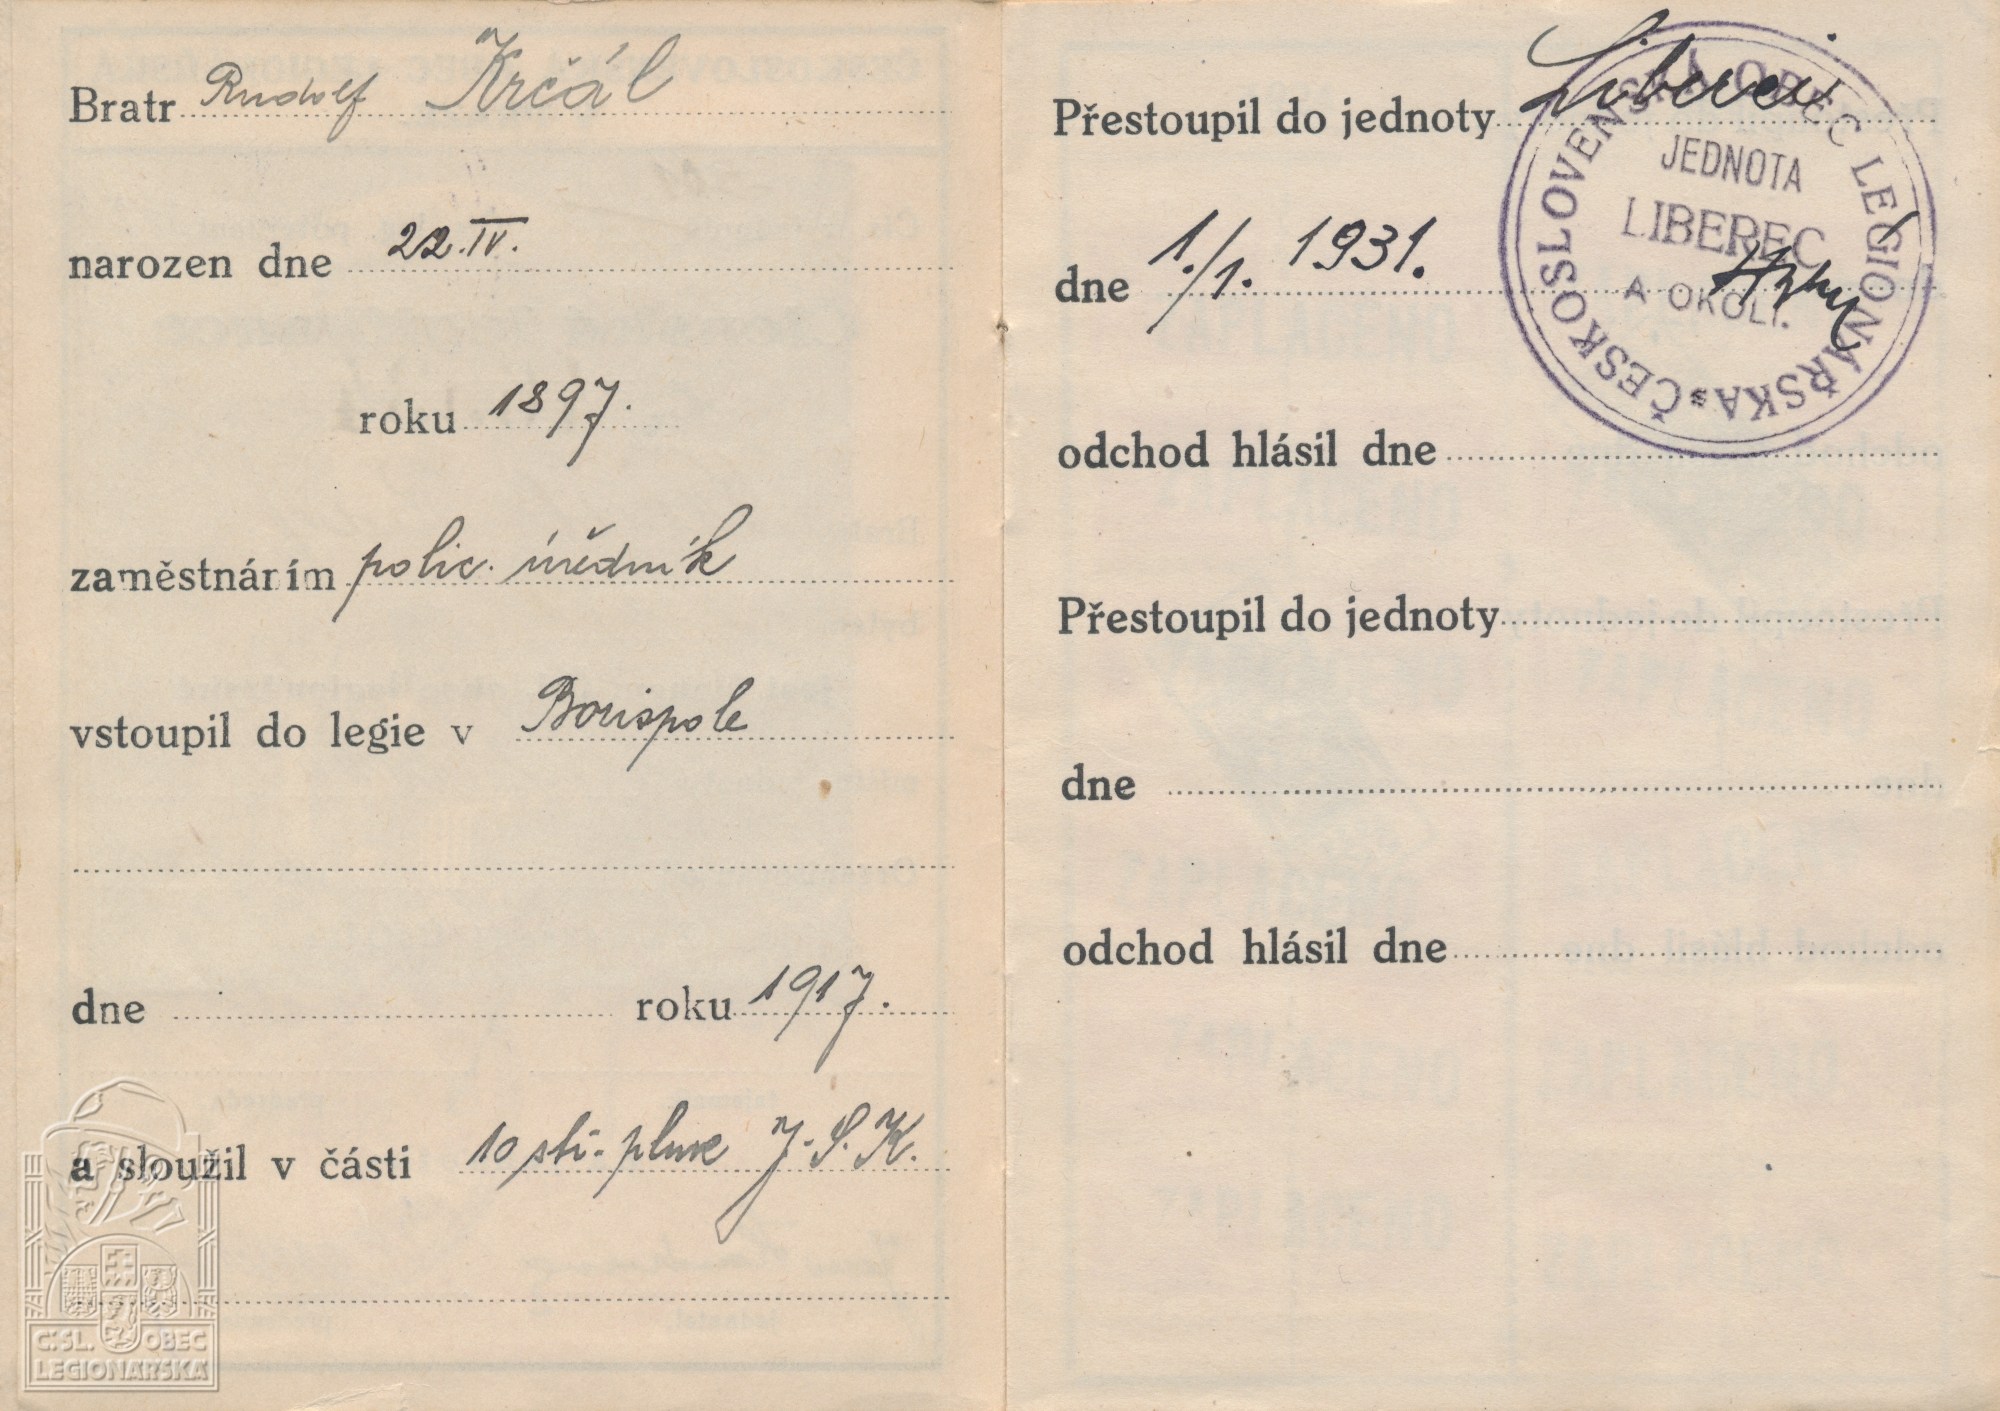 Bratr Rudolf Krčál
narozen dne 22.IV.
roku 1897.
zaměstnáním polic. úředník
vstoupil do legie v Borispole
dne roku 1917.
a sloužil v části 10 stř. pluk J.S.K.
Č.SL. OBEC
LEGIONÁŘSKÁ
Přestoupil do jednoty Liberec
dne 1./1. 1931.
ČESKOSLOVENSKÁ OBEC LEGIONÁŘSKA
JEDNOTA
LIBEREC
A OKOLÍ.
odchod hlásil dne
Přestoupil do jednoty
dne
odchod hlásil dne